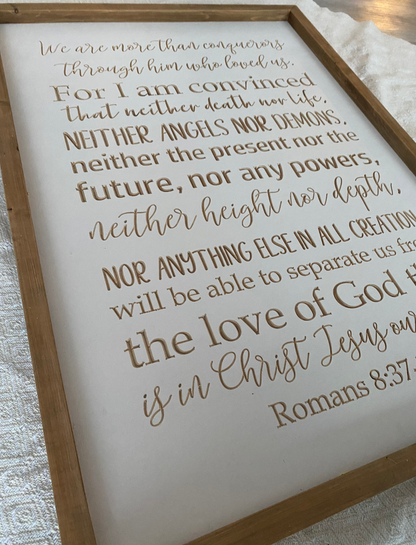 We are more than conquerors
through him who loved us.
For I am convinced
that neither death nor life,
NEITHER ANGELS NOR DEMONS,
neither the present nor the
future, nor any powers,
neither height nor depth,
NOR ANYTHING ELSE IN ALL CREATION
will be able to separate us
the love of God
is in Christ Jesus our
Romans 8:37